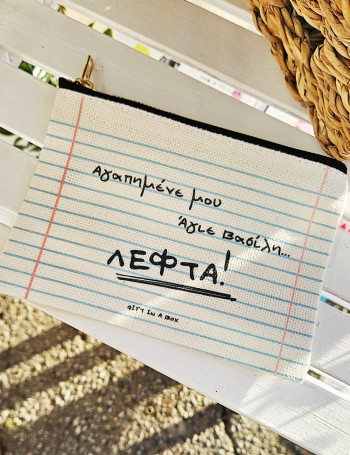 Αγαπημένε μου
Άγιε Βασίλη...
ΛΕΦΤΑ!
GIFT IN A BOX